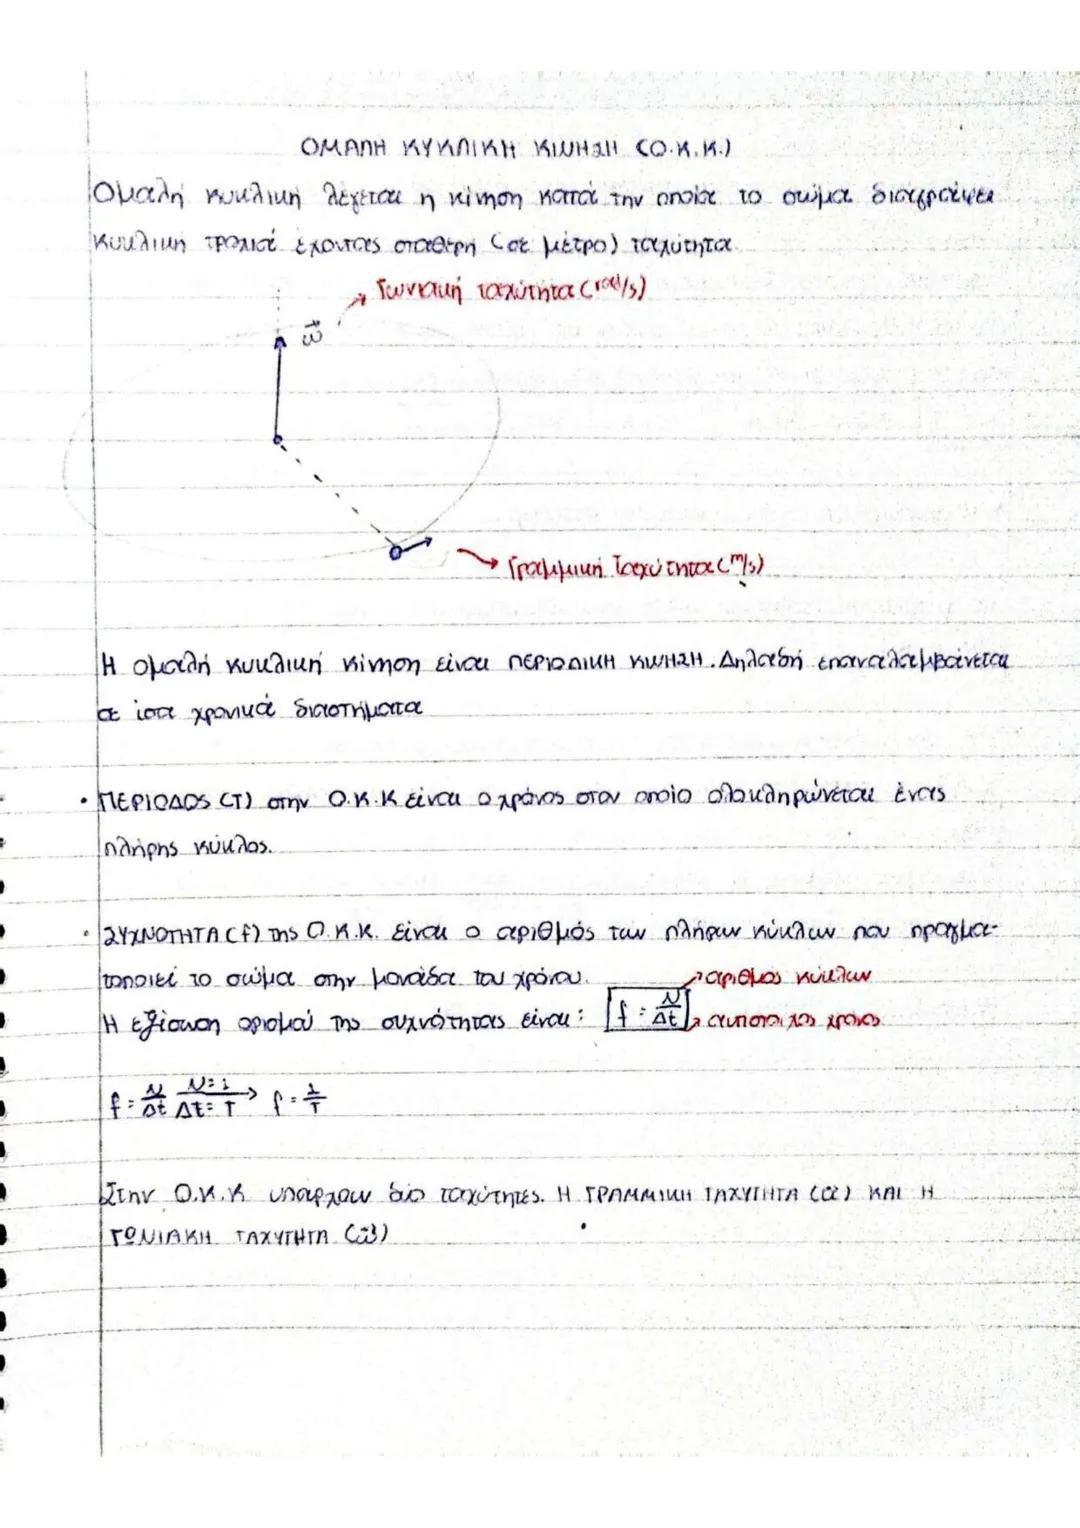 ΟΜΑΛΗ ΚΥΚΛΙΚΗ ΚΙΝΗΣΗ (Ο.Κ.Κ.)
Ομαλή κυκλική λέγεται η κίνηση κατά την οποία το σώμα διαγράφει
κυκλική τροχιά έχοντας σταθερή (σε μέτρο) ταχύτητα.
Γωνιακή ταχύτητα (rad/s)
ω⃗
Γραμμική Ταχύτητα (m/s)
Η ομαλή κυκλική κίνηση είναι ΠΕΡΙΟΔΙΚΗ ΚΙΝΗΣΗ. Δηλαδή επαναλαμβάνεται
σε ίσα χρονικά διαστήματα
• ΠΕΡΙΟΔΟΣ (Τ) στην Ο.Κ.Κ είναι ο χρόνος στον οποίο ολοκληρώνεται ένας
πλήρης κύκλος.
• ΣΥΧΝΟΤΗΤΑ (f) της Ο.Κ.Κ. είναι ο αριθμός των πλήρων κύκλων που πραγμα-
τοποιεί το σώμα στην μονάδα του χρόνου.
αριθμός κύκλων
Η εξίσωση ορισμού της συχνότητας είναι: f = N/Δt αντίστοιχος χρόνος
f = N/Δt N=1 Δt=T → f = 1/T
Στην Ο.Κ.Κ υπάρχουν δύο ταχύτητες. Η ΓΡΑΜΜΙΚΗ ΤΑΧΥΤΗΤΑ ΚΑΙ Η
ΓΩΝΙΑΚΗ ΤΑΧΥΤΗΤΑ (ω⃗)